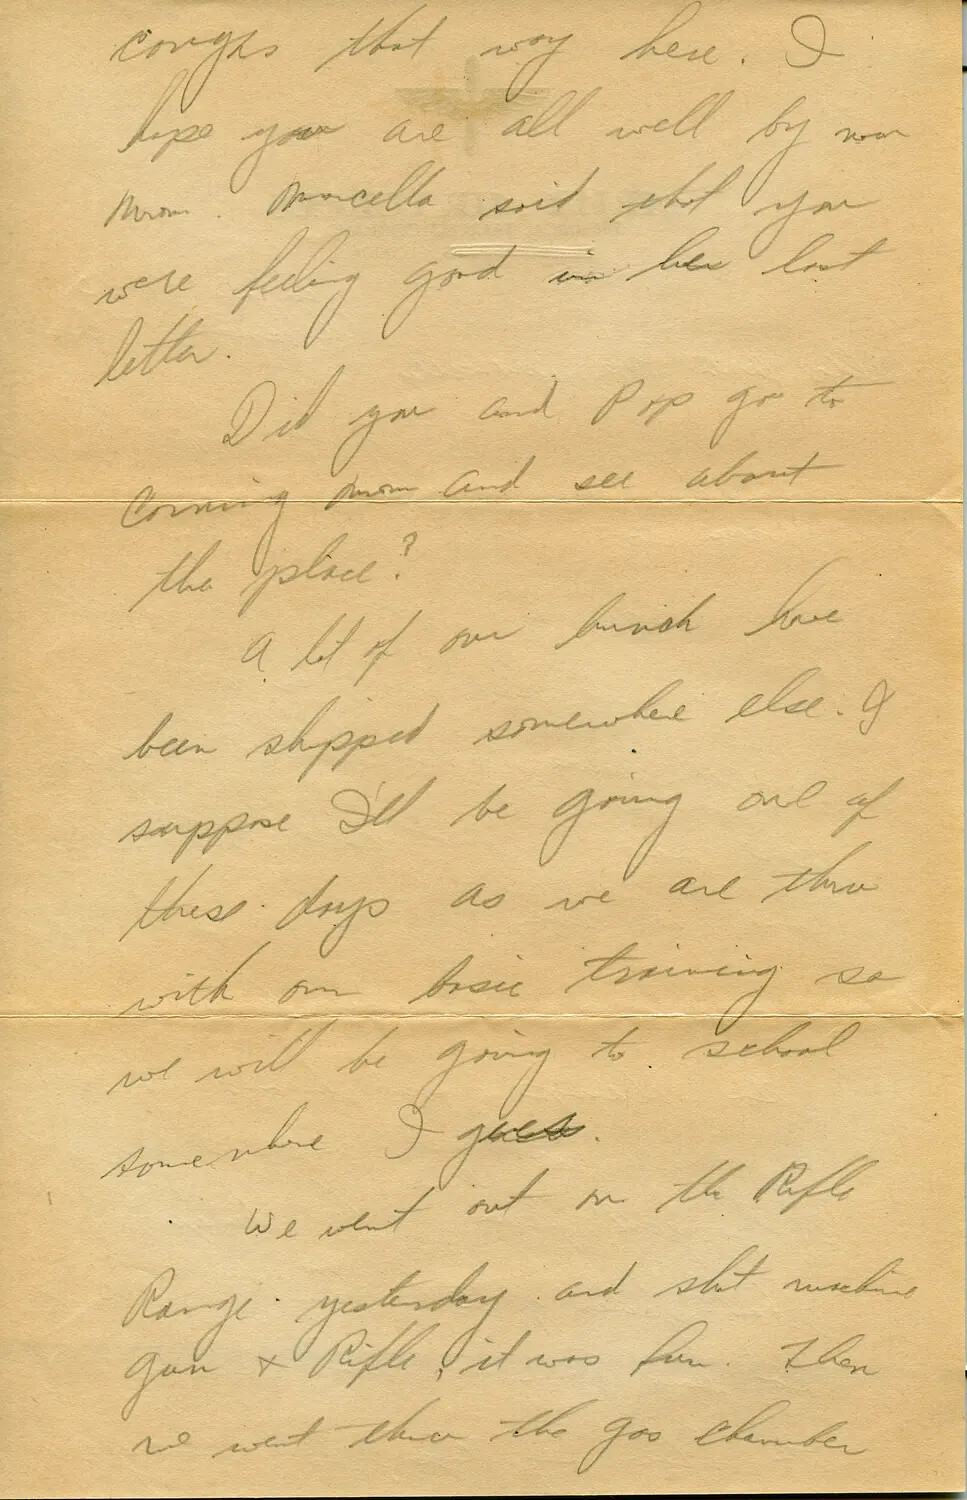 coughs that way here. I
hope you are all well by now
Mom. Marcella said that you
were feeling good in her last
letter.
Did you and Pop go to
Corning Mom and see about
the place?
A lot of our bunch have
been shipped somewhere else. I
suppose I'll be going one of
these days as we are thru
with our basic training so
we will be going to school
somewhere I guess.
We went out on the Rifle
Range yesterday and shot machine
gun & Rifle, it was fun. Then
we went thru the gas chamber